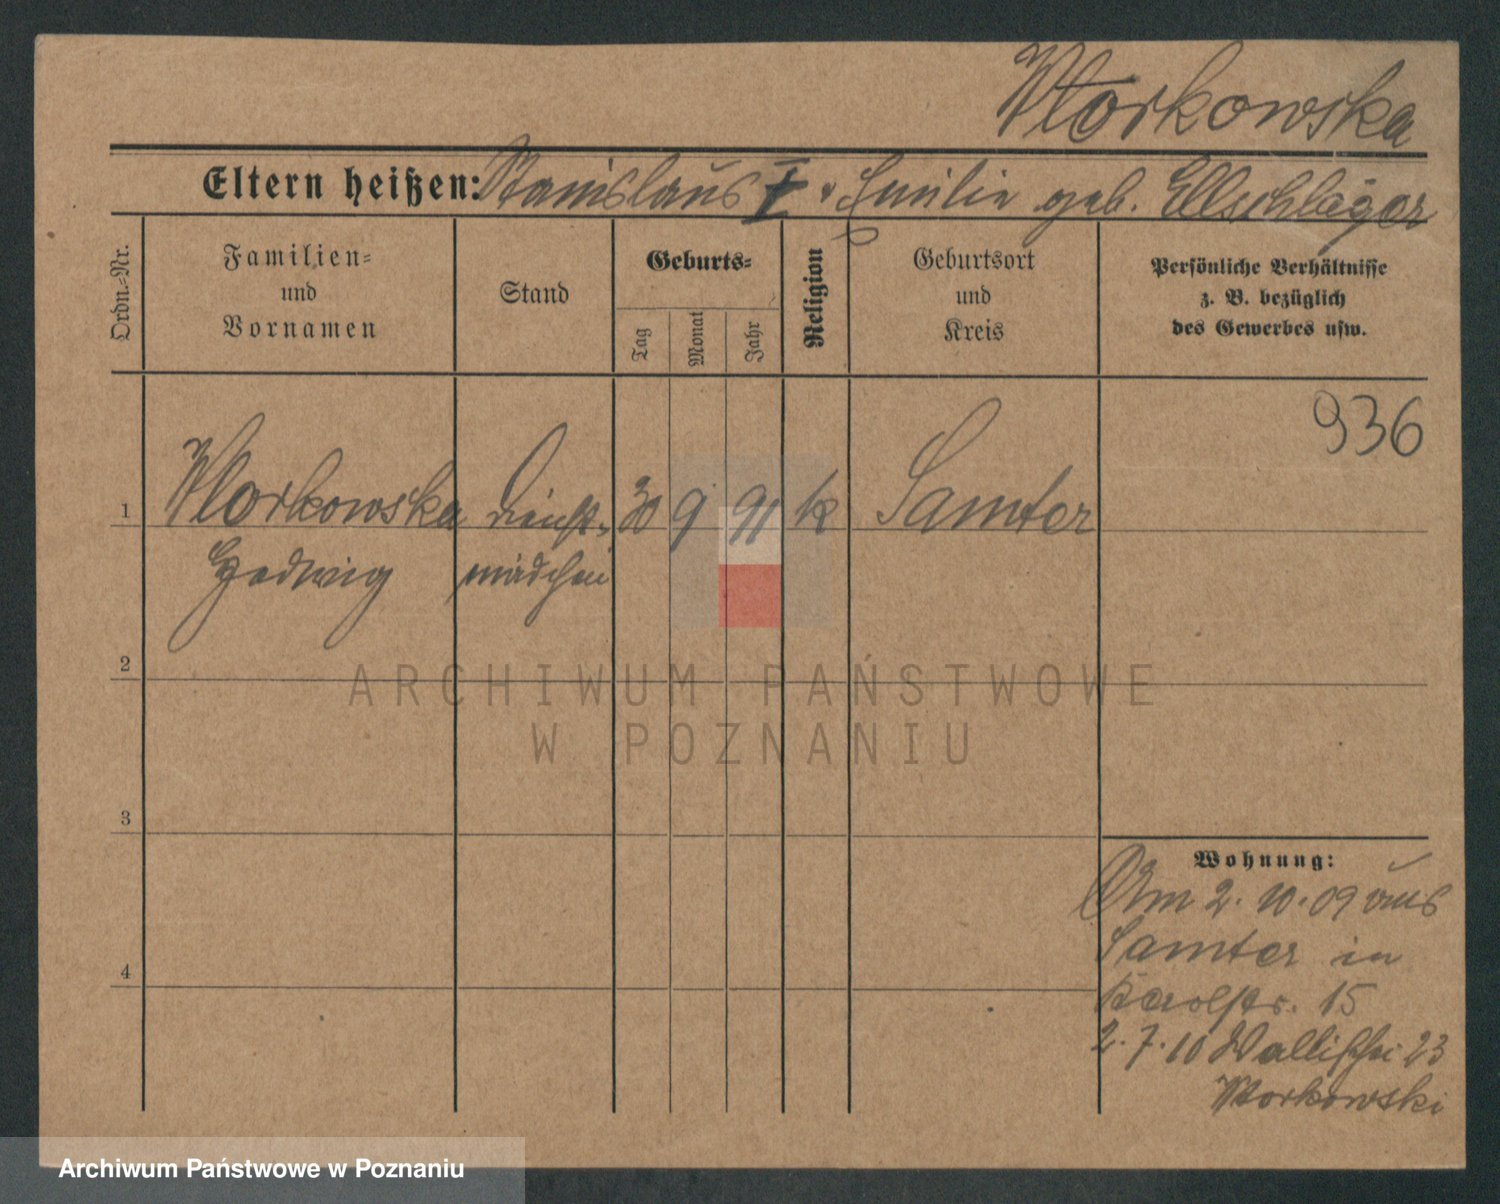 Workowska
Eltern heißen: Stanislaus I u Emilie geb. Ellschläger
Ordn.-Nr.
Familien-
und
Vornamen
Stand
Geburts-
Tag
Monat
Jahr
Religion
Geburtsort
und
Kreis
Persönliche Verhältnisse
z. B. bezüglich
des Gewerbes usw.
936
1 Workowska Dienst- 30 9 91 k Samter
Hedwig mädchen
2
3
4
Wohnung:
Am 2. 10. 09 aus
Samter in
Karolstr. 15
2. 7. 10 Wallischei 23
Workowski
ARCHIWUM PAŃSTWOWE
W POZNANIU
Archiwum Państwowe w Poznaniu